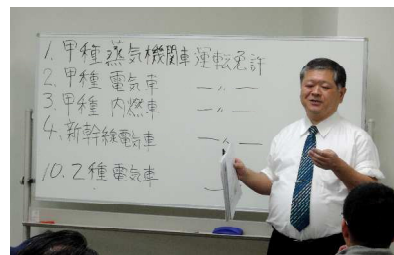 1. 甲種蒸気機関車運転免許
2. 甲種 電気車 —〃—
3. 甲種 内燃車 —〃—
4. 新幹線電気車 —〃—
10. 2種電気車